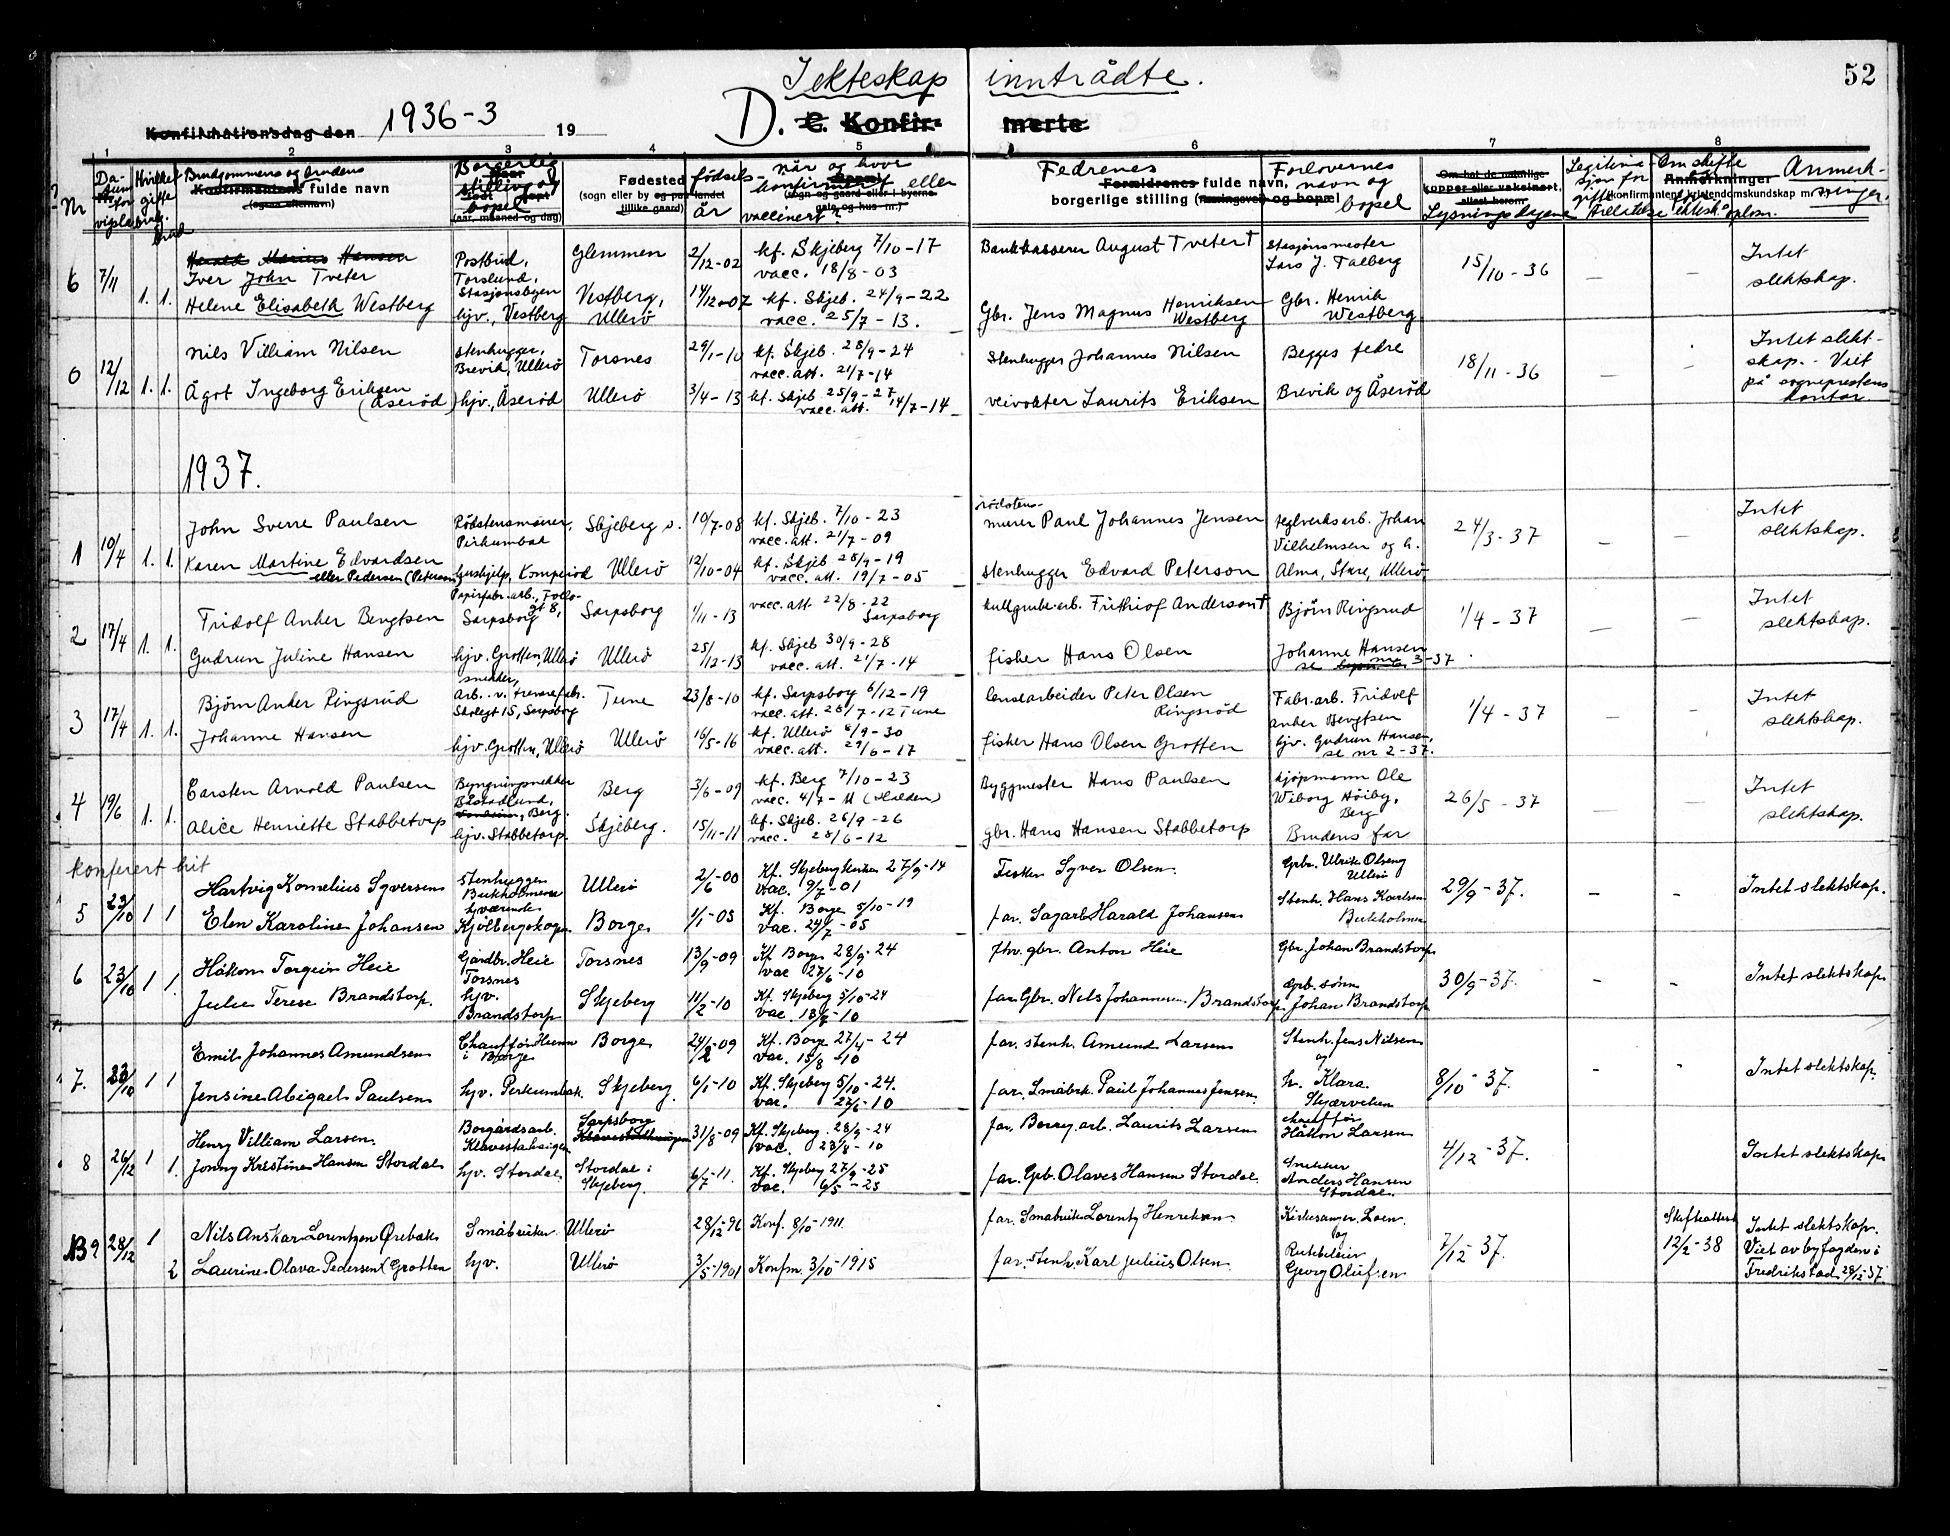 52
I ekteskap inntrådte.
Konfirmationsdag den 1936-3 19
D. C. Konfirmerte
1 2 3 4 5 6 7 8
Nr
Datum for vigslen
Hvilket gifte
Brudgommens og brudens
Konfirmantens fulde navn
(ogsaa efternavn)
Borgerlig stilling og bopel
(aar, maaned og dag)
Fødested
(sogn eller by og paa landet tillike gaard)
fødsels-år
når og hvor konfirmert eller vaccinert?
Fedrenes
Forældrenes fulde navn,
borgerlige stilling (næringsvei) og bopæl
Forlovernes navn og bopel
Om hat de naturlige kopper eller vakcinert,
allest herom
Lysningsdagene
Om skifte
Anmerkninger
(konfirmantens kristendomskundskap m. v.)
Anmerkninger.
6 7/11 1. 1.
Harald Marius Hansen
Iver John Tveter
Helene Elisabeth Westberg
Postbud,
Torslund,
Stasjonsbyen
hjv., Vestberg
Glemmen
Vestberg,
Ullerö
2/12-02
14/12-07
kf. Skjeberg 7/10-17
vacc. 18/8-03
kf. Skjeb. 24/9-22
vacc. 25/7-13.
Bankkasserer August Tveter †
Gbr. Jens Magnus Henriksen
Westberg
Stasjonsmester
Lars J. Talberg
Gbr. Henrik
Westberg
15/10-36
Intet
slektskap.
0 12/12 1. 1.
Nils Villiam Nilsen
Ågot Ingeborg Eriksen
(Åserød)
Stenhugger,
Brevik, Ullerö
hjv., Åserød
Torsnes
Ullerö
29/1-10
3/4-13
kf. Skjeb. 28/9-24
vacc. att. 21/7-14
kf. Skjeb 25/9-27
vacc. att. 14/7-14
Stenhugger Johannes Nilsen
veivokter Laurits Eriksen
Begges fedre
Brevik og Åserød
18/11-36
Intet slekt-
skap. - Viet
på sogneprestens
kontor
1937.
1 10/4 1. 1.
John Sverre Paulsen
Karen Martine Edvardsen
eller Pedersen (Peterson)
Rödstensmurer,
Pirkumbak
hushjelp, Komperöd
Skjeberg s.
Ullerö
10/7-08
12/10-04
kf. Skjeb. 7/10-23
vacc. att. 21/7-09
kf. Skjeb 28/9-19
vacc. att. 19/7-05
rödstens-
murer Paul Johannes Jensen
Stenhugger Edvard Peterson
teglverksarb. Johan
Vilhelmsen og h.
Alma, Stare, Ullerö
24/3-37
Intet
slektskap.
2 17/4 1. 1.
Fridolf Anker Bengtsen
Gudrun Juline Hansen
Papirfabr. arb., Follo-
gt 8,
Sarpsborg
hjv. Grotten, Ullerö
Sarpsborg
Ullerö
1/11-13
25/12-13
vacc. att. 22/8-22
Sarpsborg
kf. Skjeb 30/9-28
vacc. att. 21/7-14
kullgrubearb. Frithiof Anderson †
fisker Hans Olsen
Bjørn Ringsrud
Johanne Hansen
se nr. 3-37
1/4-37
Intet
slektskap.
3 17/4 1. 1.
Björn Anker Ringsrud
Johanne Hansen
snekker,
arb. v. trevarefabr.
Skolegt 15, Sarpsborg
hjv. Grotten, Ullerö
Tune
Ullerö
23/8-10
16/5-16
kf. Sarpsborg 6/12-19
vacc. att. 28/7-12 Tune
kf. Ullerö 6/9-30
vacc. att. 29/6-17
lensearbeider Peter Olsen
Ringsröd
fisker Hans Olsen Grotten
Fabr. arb. Fridolf
Anker Bengtsen
hjv. Gudrun Hansen,
se nr 2-37.
1/4-37
Intet
slektskap.
4 19/6 1. 1.
Carsten Arnold Paulsen
Alice Henriette Stabbetorp
Bygningssnekker
Berg.
hjv. Stabbetorp.
Berg
Skjeberg.
3/6-09
15/11-11
kf. Berg 7/10-23
vacc. 4/7-11 (Halden)
kf. Skjeb. 26/9-26
vacc. 28/6-12
Byggmester Hans Paulsen
gbr. Hans Hansen Stabbetorp
kjöpmann Ole
Wiborg Höiby,
Berg
Brudens far
26/5-37
Intet
slektskap.
konferert hit
5 23/10 1 1
Hartvig Kornelius Syversen
Elen Karoline Johansen
Stenhugger
Bukholmene
hjværende
Kjölbergskogen
Ullerö
Borge
2/6-00
1/1-05
Kf. Skjeberg kirke 27/9-14
Vac. 9/7-01
Kf. Borge 5/10-19
Vac. 24/7-05
Fisker Syver Olsen.
far. Sagarb. Harald Johansen
Gbr. Ulrik Olseng
Ullerö
Stenh. Hans Karlsen
Bukholmen
29/9-37.
Intet slektskap.
6 23/10 1 1.
Håkon Torgeir Heie
Julie Terese Brandstorp.
Gårdbr. Heie
Torsnes
hjv.
Brandstorp
Torsnes
Skjeberg
13/9-09
11/2-10
Kf. Borge 28/9-24
vac 27/6-10
Kf. Skjeberg 5/10-24
Vac. 18/8-10
fhv. gbr. Anton Heie
far. Gbr. Nils Johannesen Brandstorp
Gbr. Johan Brandstorp
Gbr. sönn
Johan Brandstorp
30/9-37.
Intet slektskap
7. 23/10 1 1
Emil Johannes Amundsen
Jensine Abigael Paulsen
Chaufför Heum
i Borge
hjv. Perkumbak.
Borge
Skjeberg.
24/2-09
6/1-10
Kf. Borge 27/4-24
Vac. 15/8-10
Kf. Skjeberg 5/10-24.
Vac. 27/6-10
far. stenh. Amund Larsen
far. Småbrk. Paul Johannes Jensen
Stenh. Jens Nilsen
og
h. Klara.
Skjærviken
8/10-37.
Intet slektskap.
8 26/12 1 1.
Henry Villiam Larsen.
Jonny Kristine Hansen Stordal
Borgårdsarb.
Klavestadhaugen
hjv. Stordal
Sarpsborg
Klavestadhaugen
Stordal i
Skjeberg.
31/8-09
6/7-11.
Kf. Skjeberg. 28/9-24
Vac. 23/8-10
Kf. Skjeberg 27/9-25
Vac. 6/5-25
far. Borrg. arb. Laurits Larsen
far. Gbr. Olaves Hansen Stordal
Chaufför
Håkon Larsen
Snekker
Anders Hansen
Stordal.
4/12-37.
Intet slektskap
B 9 28/12 1 2
Nils Anskar Lorentzen Örebæk
Laurine Olava Pedersen (Grotten
Småbruker
hjv.
Ullerö
Ullerö
28/12-96
3/5-1901
Konf. 8/10-1911
Konfm. 3/10-1915
far. Småbruker Lorentz Henriksen
far. stenh. Karl Julius Olsen.
Kirkesanger. Loen.
og
Rutebileier
Georg Olufsen
7/12-37.
Skifteattest
12/2-38
Intet slektskap.
Viet av byfogden i
Fredrikstad 28/12-37